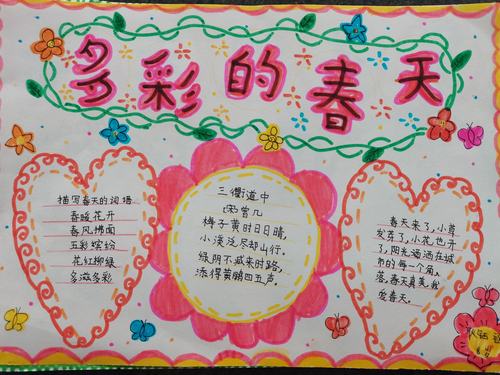 多彩的春天
描写春天的词语
春暖花开
春风拂面
五彩缤纷
花红柳绿
多滋多彩
三衢道中
宋曾几
梅子黄时日日晴，
小溪泛尽却山行。
绿阴不减来时路，
添得黄鹂四五声。
春天来了，小草
发芽了，小花也开
了，阳光洒满在城
市的每一个角
落，春天真美，我
爱春天。